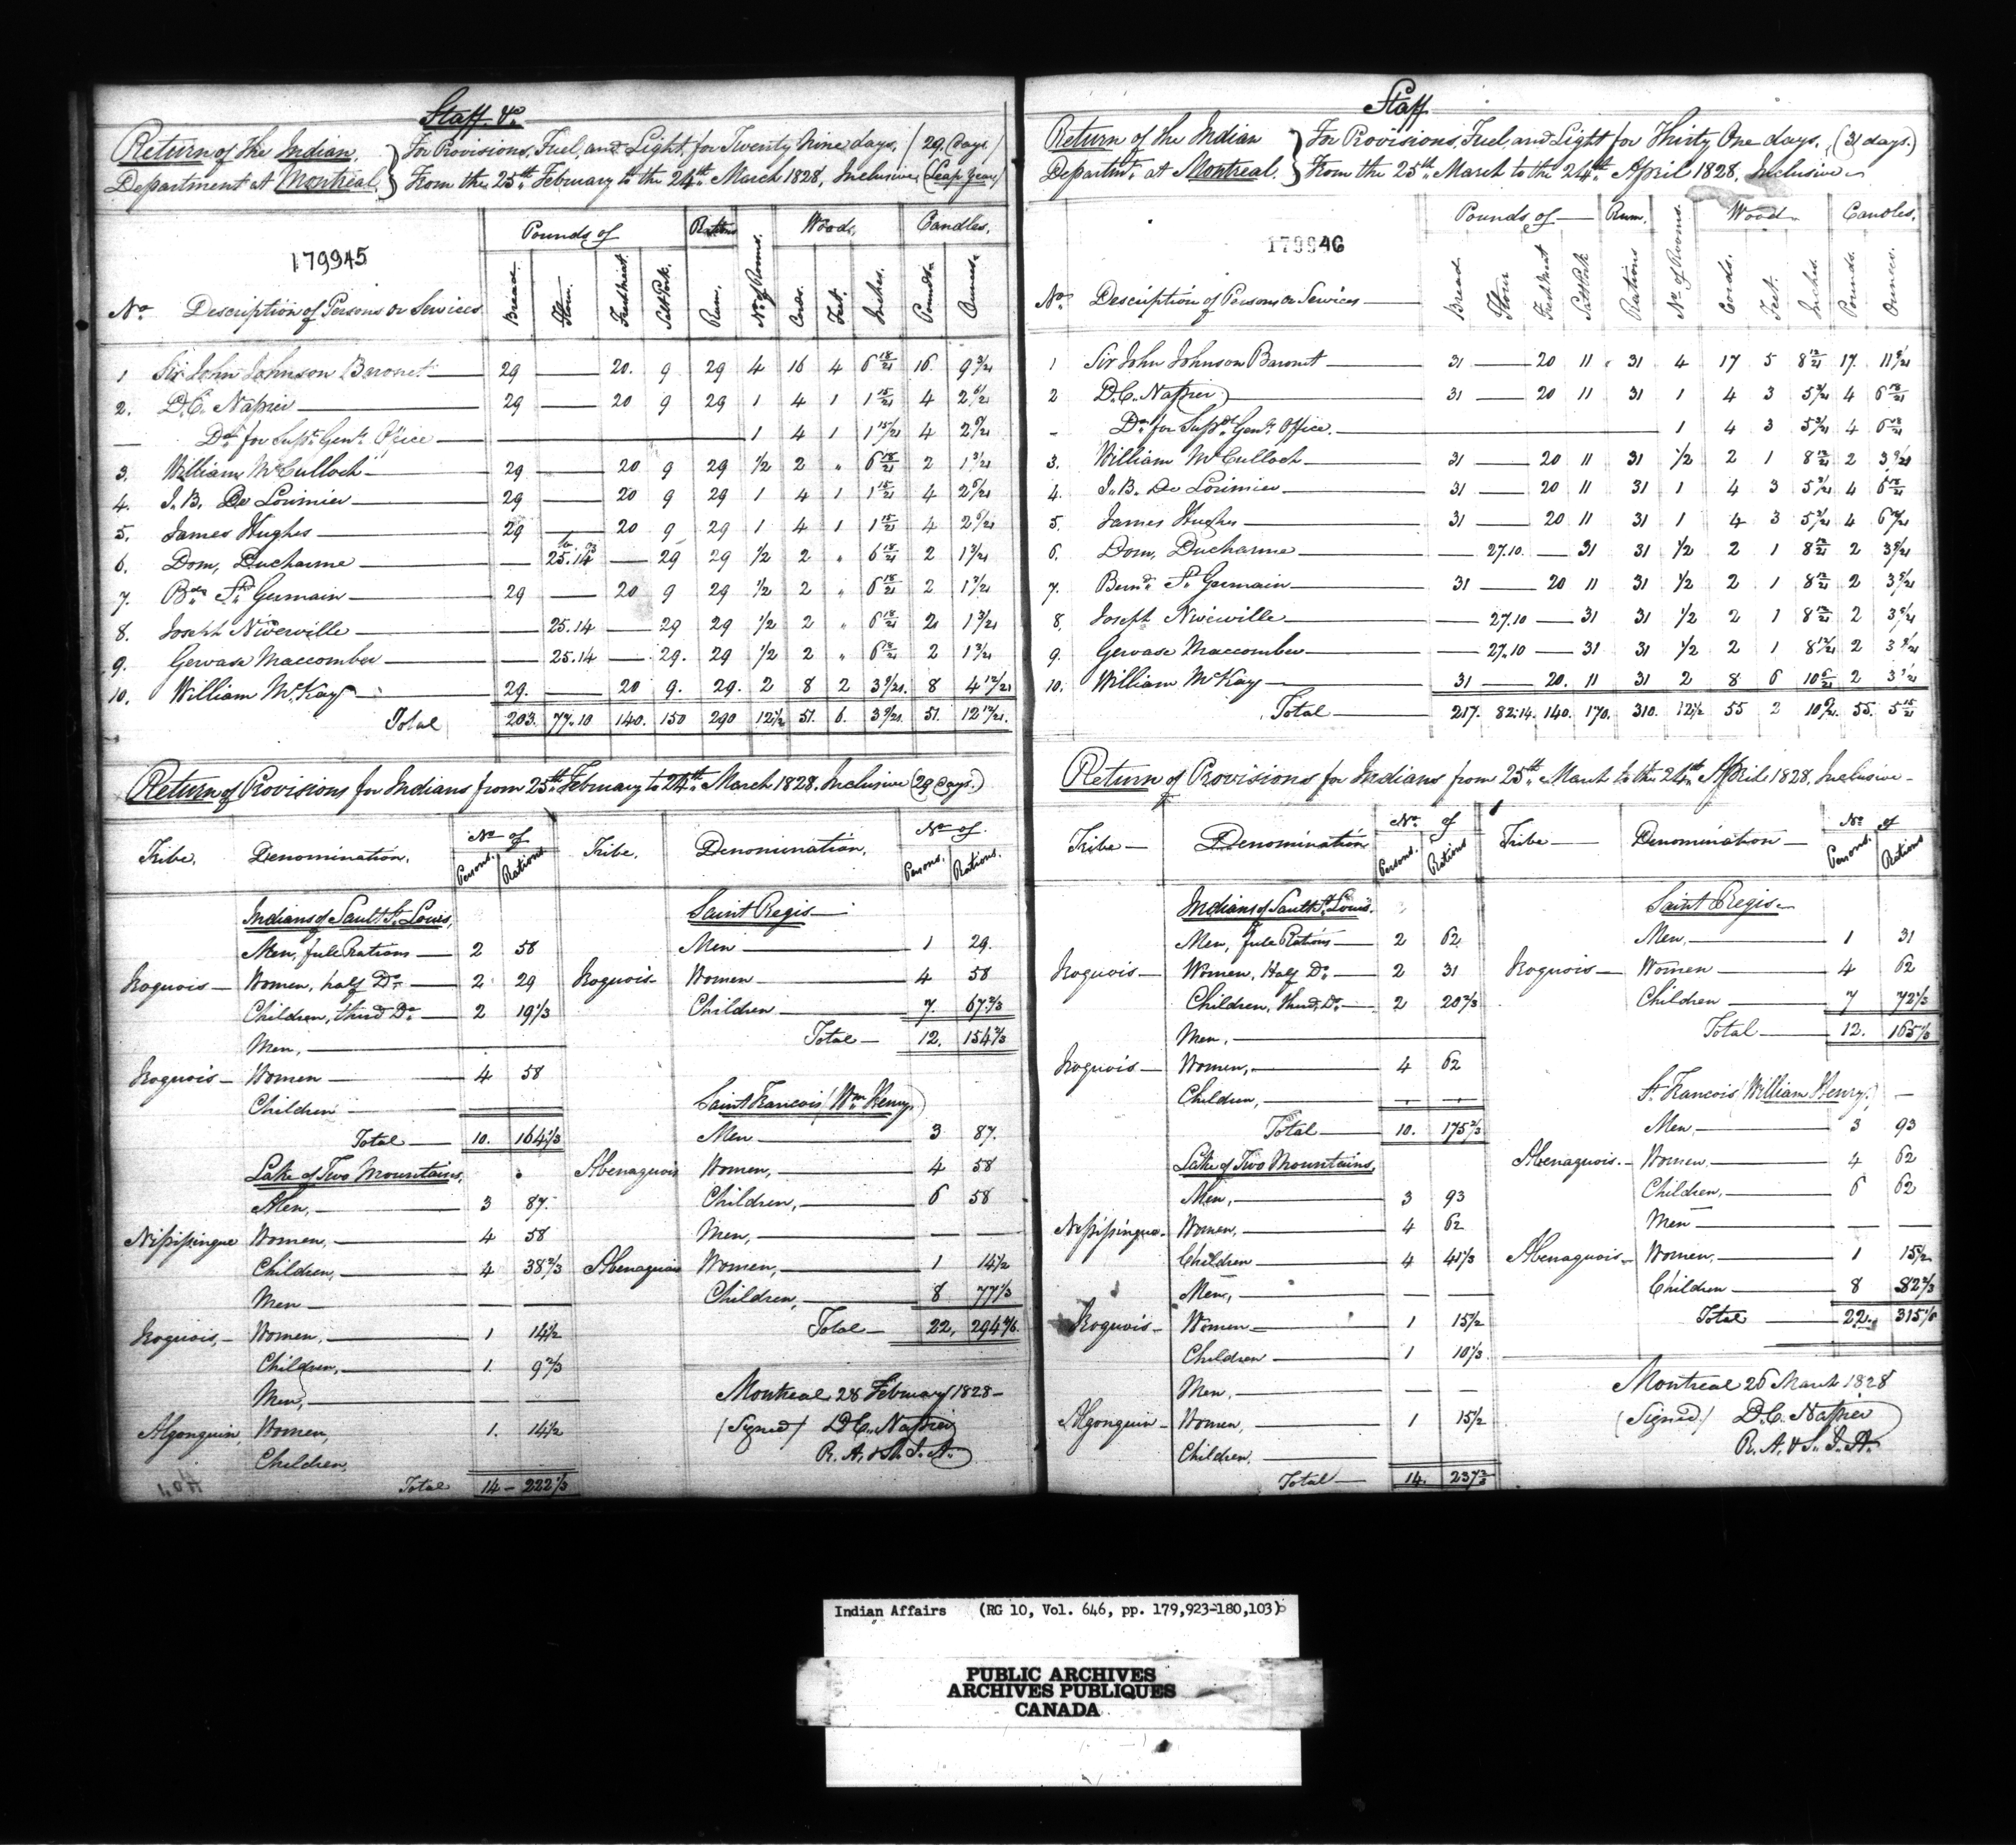 Staff &c.
Return of the Indian } For Provisions, Fuel, and Light, for Twenty Nine days, (29 Days.)
Department at Montreal. } From the 25th February to the 24th March 1828, Inclusive (Leap year)
179945
Pounds of Wood. Candles.
No. Description of Persons or Services Bread. Flour. Fresh Meat. Salt Pork. Rum. No. of Rooms. Cords. Feet. Inches. Pounds. Ounces.
1 Sir John Johnson Baronet 29 — 20. 9 29 4 16 4 6 18/21 16 9 3/21
2. D.C. Napier 29 — 20 9 29 1 4 1 1 15/21 4 2 6/21
— Do. for Supt. Genl. Office 1 4 1 1 15/21 4 2 6/21
3. William McCulloch 29 — 20 9 29 1/2 2 " 6 18/21 2 1 3/21
4. J.B. De Lorimier 29 — 20 9 29 1 4 1 1 15/21 4 2 6/21
5. James Hughes 29 — 20 9 29 1 4 1 1 15/21 4 2 6/21
6. Dom. Ducharme — lb oz 25.14 — 29 29 1/2 2 " 6 18/21 2 1 3/21
7. Bd. St. Germain 29 — 20 9 29 1/2 2 " 6 18/21 2 1 3/21
8. Joseph Niverville — 25.14 — 29 29 1/2 2 " 6 18/21 2 1 3/21
9. Gervase Maccomber — 25.14 — 29. 29 1/2 2 " 6 18/21 2 1 3/21
10. William McKay 29. — 20 9. 29. 2 8 2 3 9/21. 8 4 12/21
Total 203. 77.10 140. 150 290 12 1/2 51. 6. 3 9/21. 51. 12 12/21.
Return of Provisions for Indians from 25th February to 24th March 1828. Inclusive (29 Days.)
Tribe. Denomination. No. of Persons. Rations Tribe. Denomination. No. of Persons. Rations.
Indians of Sault St. Louis,
Men, full Rations 2 58
Iroquois — Women, half Do. 2 29
Children, third Do. 2 19 1/3
Men,
Iroquois — Women 4 58
Children
Total 10. 164 1/3
Lake of Two Mountains,
Men, 3 87.
Nipissingue Women, 4 58
Children, 4 38 2/3
Men — —
Iroquois, Women, 1 14 1/2
Children, 1. 9 2/3
Men, — —
Algonquin, Women, 1. 14 1/2
Children,
Total 14 — 222 1/3
Saint Regis
Men 1 29.
Iroquois Women 4 58
Children 7. 67 2/3
Total 12. 154 2/3
Saint Francois (Wm. Henry)
Men 3 87.
Abenaquois Women, 4 58
Children, 6 58
Men, — —
Abenaquois Women, 1 14 1/2
Children, 8 77 1/3
Total 22, 294 5/6.
Montreal 28 February 1828
(Signed) D.C. Napier
R. A. & S. I. A.
Staff.
Return of the Indian } For Provisions, Fuel, and Light for Thirty One days, (31 days.)
Departmt. at Montreal. } From the 25th March to the 24th April 1828, Inclusive
179946
Pounds of Rum. Wood Candles.
No. Description of Persons or Services Bread. Flour Fresh Meat Salt Pork Rations No. of Rooms. Cords. Feet. Inches. Pounds. Ounces.
1 Sir John Johnson Baronet 31 — 20 11 31 4 17 5 8 12/21 17. 11 9/21
2 D.C. Napier 31 — 20 11 31 1 4 3 5 3/21 4 6 18/21
- Do. for Supdt. Genl. Office. 1 4 3 5 3/21 4 6 18/21
3. William McCulloch 31 — 20 11 31 1/2 2 1 8 12/21 2 3 9/21
4. J.B. De Lorimier 31 — 20 11 31 1 4 3 5 3/21 4 6 18/21
5. James Hughes 31 — 20 11 31 1 4 3 5 3/21 4 6 18/21
6. Dom. Ducharme — 27.10. — 31 31 1/2 2 1 8 12/21 2 3 9/21
7. Bernd. St. Germain 31 — 20 11 31 1/2 2 1 8 12/21 2 3 9/21
8. Joseph Niverville — 27.10 — 31 31 1/2 2 1 8 12/21 2 3 9/21
9. Gervase Maccomber — 27.10 — 31 31 1/2 2 1 8 12/21 2 3 9/21
10. William McKay 31 — 20. 11 31 2 8 6 10 6/21 2
Total 217. 82.14. 140. 170. 310. 12 1/2 55 2 55. 5 15/21
Return of Provisions for Indians from 25th March to the 24th April 1828, Inclusive
Tribe Denomination No. of Persons. Rations Tribe Denomination No. of Persons. Rations
Indians of Sault St. Louis.
Men, full Rations 2 62
Iroquois Women, Half Do. 2 31
Children, third Do. 2 20 2/3
Men,
Iroquois Women, 4 62
Children, — —
Total 10. 175 2/3
Lake of Two Mountains,
Men, 3 93
Nipissingue. Women, 4 62
Children 4 41 1/3
Men, — —
Iroquois Women 1 15 1/2
Children 1 10 1/3
Men. — —
Algonquin Women, 1 15 1/2
Children.
Total 14. 237 2/3
Saint Regis
Men, 1 31
Iroquois Women 4 62
Children 7 72 1/3
Total 12. 165 1/3
St. Francois (William Henry.)
Men, 3 93
Abenaquois. Women. 4 62
Children, 6 62
Men — —
Abenaquois Women, 1 15 1/2
Children 8 82 2/3
Total 22. 315 1/6
Montreal 26 March 1828
(Signed) D.C. Napier
R. A. & S. I. A.
Indian Affairs (RG 10, Vol. 646, pp. 179,923-180,103)
PUBLIC ARCHIVES
ARCHIVES PUBLIQUES
CANADA